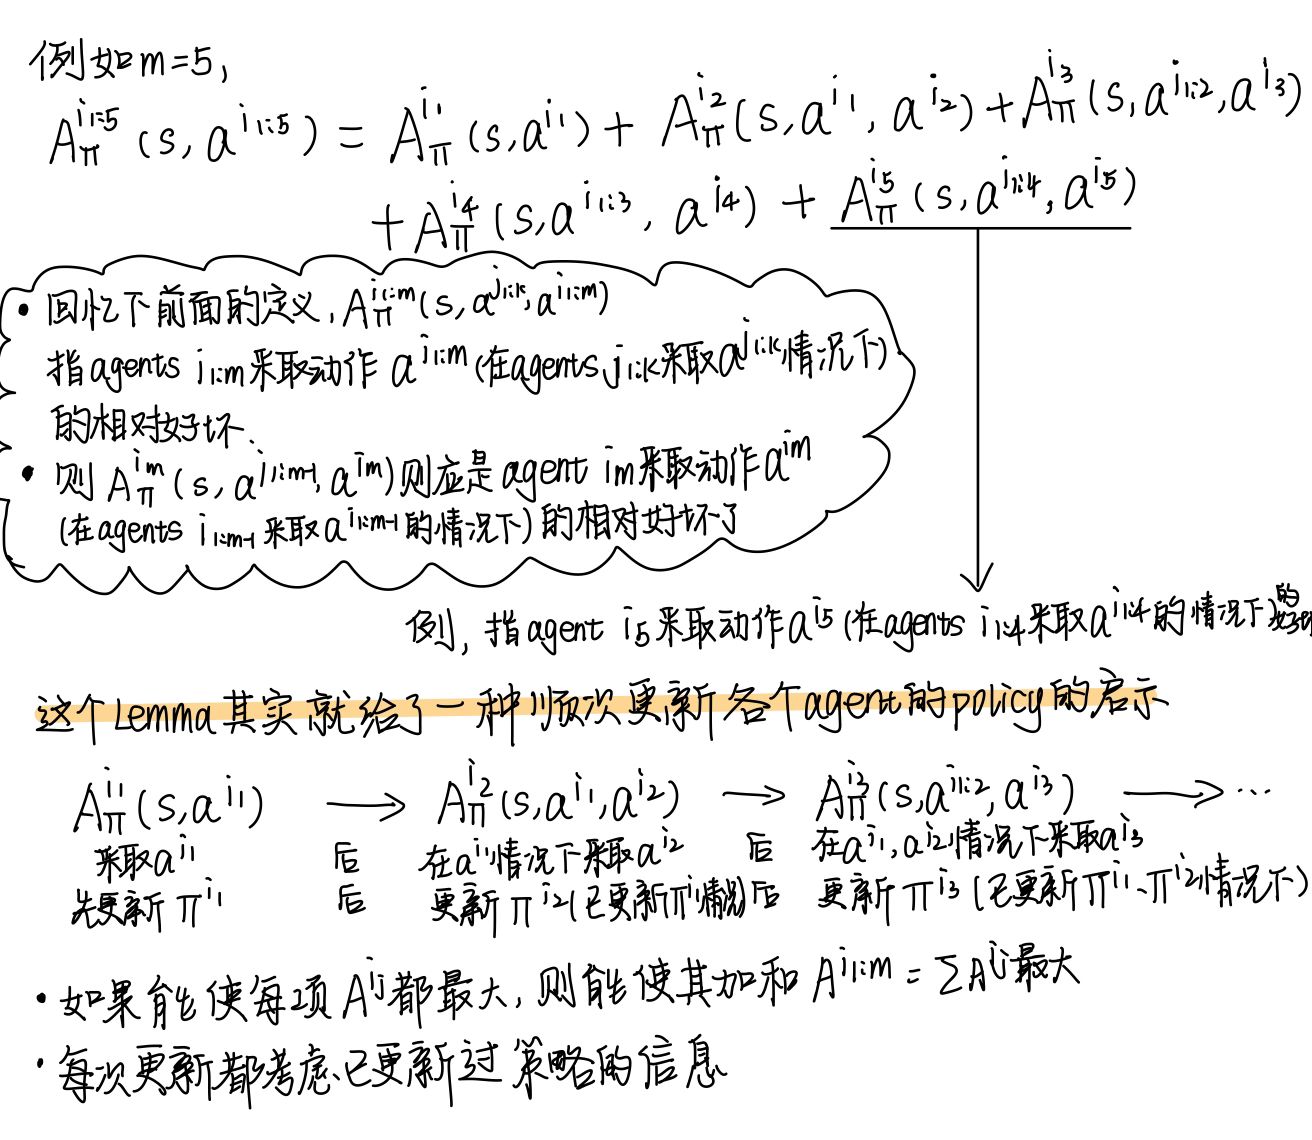 例如m=5,
A_π^{i_{1:5}}(s, a^{i_{1:5}}) = A_π^{i_1}(s, a^{i_1}) + A_π^{i_2}(s, a^{i_1}, a^{i_2}) + A_π^{i_3}(s, a^{i_{1:2}}, a^{i_3})
+ A_π^{i_4}(s, a^{i_{1:3}}, a^{i_4}) + A_π^{i_5}(s, a^{i_{1:4}}, a^{i_5})
• 回忆下前面的定义, A_π^{i_{1:m}}(s, a^{j_{1:k}}, a^{i_{1:m}})
指agents i_{1:m}采取动作 a^{i_{1:m}} (在agents j_{1:k}采取a^{j_{1:k}}情况下)
的相对好坏、
• 则 A_π^{i_m}(s, a^{i_{1:m-1}}, a^{i_m})则应是 agent i_m采取动作a^{i_m}
(在agents i_{1:m-1} 采取a^{i_{1:m-1}}的情况下)的相对好坏了
例, 指agent i_5采取动作a^{i_5} (在agents i_{1:4}采取a^{i_{1:4}}的情况下)的
好坏
这个Lemma其实就给了一种顺次更新各个agent的policy的启示
A_π^{i_1}(s, a^{i_1}) → A_π^{i_2}(s, a^{i_1}, a^{i_2}) → A_π^{i_3}(s, a^{i_{1:2}}, a^{i_3}) → ...
采取a^{i_1} 后 在a^{i_1}情况下采取a^{i_2} 后 在a^{i_1}, a^{i_2}情况下采取a^{i_3}
先更新 π^{i_1} 后 更新π^{i_2}(已更新π^{i_1}情况)后 更新π^{i_3}(已更新π^{i_1}、π^{i_2}情况下)
• 如果能使每项A^{i_j}都最大, 则能使其加和 A^{i_{1:m}} = ΣA^{i_j}最大
• 每次更新都考虑已更新过策略的信息